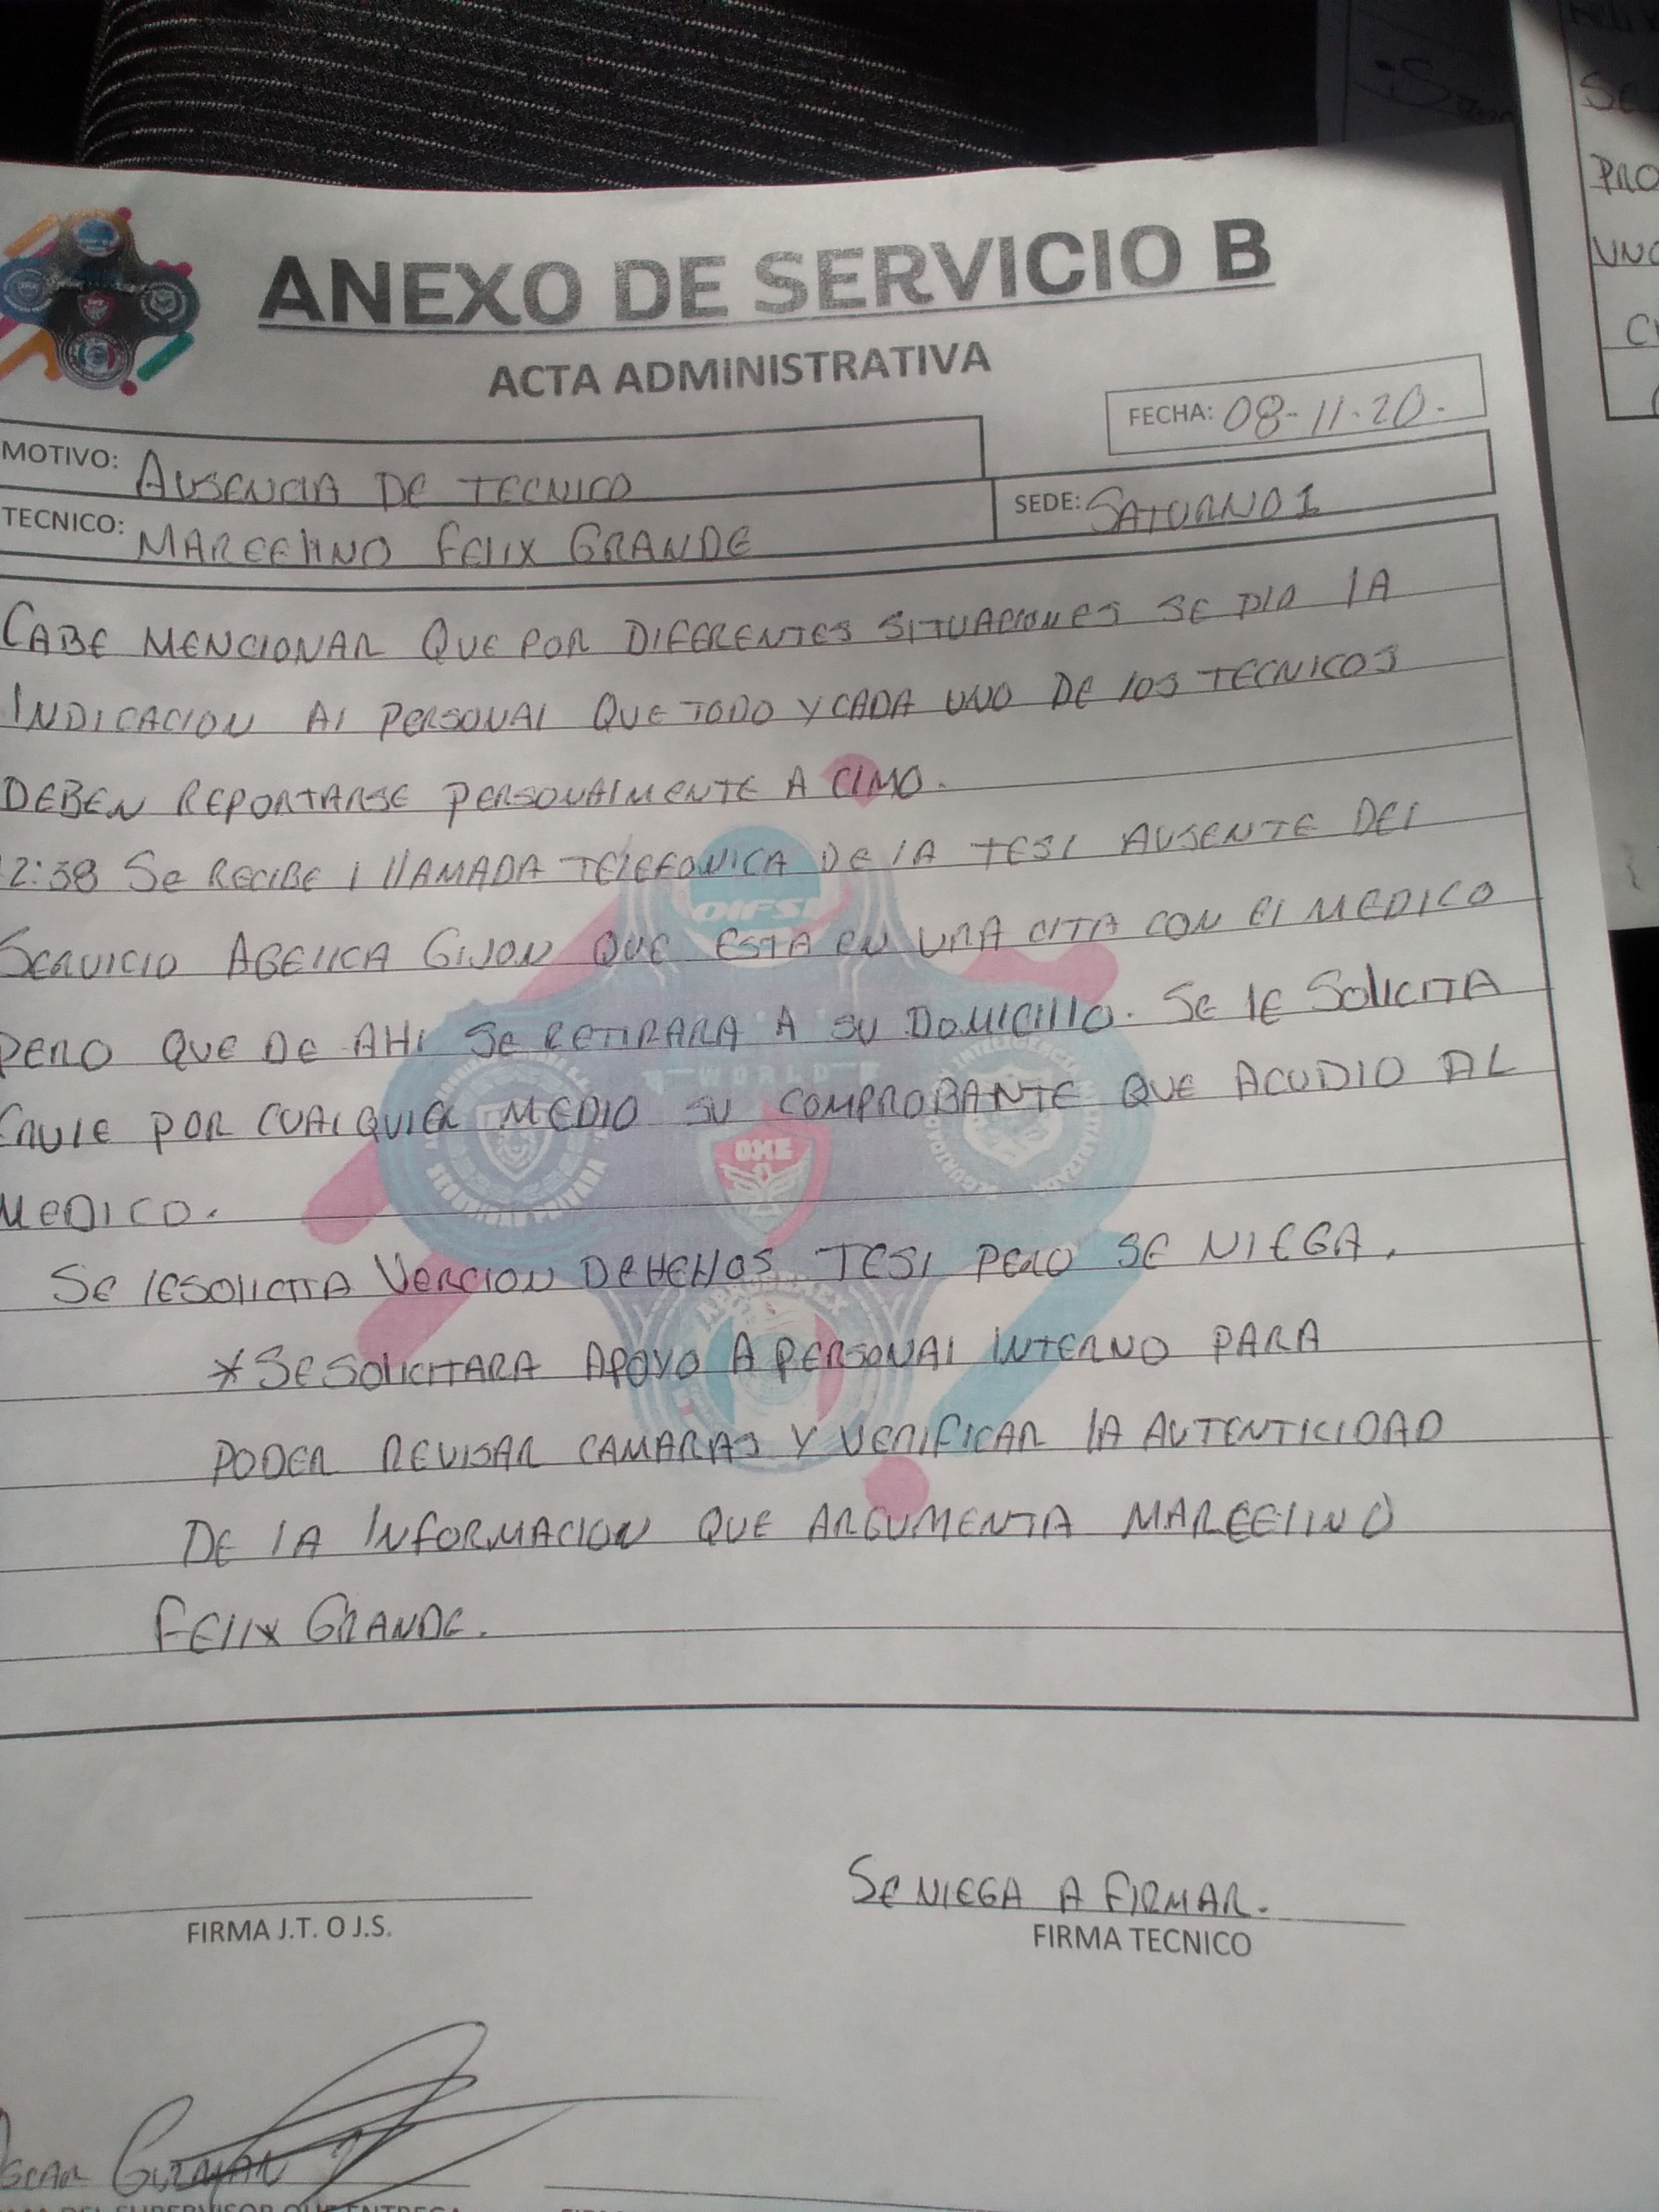 ANEXO DE SERVICIO B
ACTA ADMINISTRATIVA
FECHA: 08-11-20.
MOTIVO: AUSENCIA DE TECNICO
TECNICO: MARCELINO FELIX GRANDE
SEDE: SATURNO 1
CABE MENCIONAR QUE POR DIFERENTES SITUACIONES SE DIO LA
INDICACION AL PERSONAL QUE TODO Y CADA UNO DE LOS TECNICOS
DEBEN REPORTARSE PERSONALMENTE A CIMO.
2:38 SE RECIBE 1 LLAMADA TELEFONICA DE LA TESI AUSENTE DEL
SERVICIO AGELICA GIJON QUE ESTA EN UNA CITA CON EL MEDICO
PERO QUE DE AHI SE RETIRARA A SU DOMICILIO. SE LE SOLICITA
ENVIE POR CUALQUIER MEDIO SU COMPROBANTE QUE ACUDIO AL
MEDICO.
SE LE SOLICITA VERCION DE HEHOS TESI PERO SE NIEGA.
*SE SOLICITARA APOYO A PERSONAL INTERNO PARA
PODER REVISAR CAMARAS Y VERIFICAR LA AUTENTICIDAD
DE LA INFORMACION QUE ARGUMENTA MARCELINO
FELIX GRANDE.
OIFSI
WORLD
SE NIEGA A FIRMAR.
FIRMA J.T. O J.S.
FIRMA TECNICO
OSCAR GUZMAN
DEL SUPERVISOR QUE ENTREGA
SE
PRO
UNO